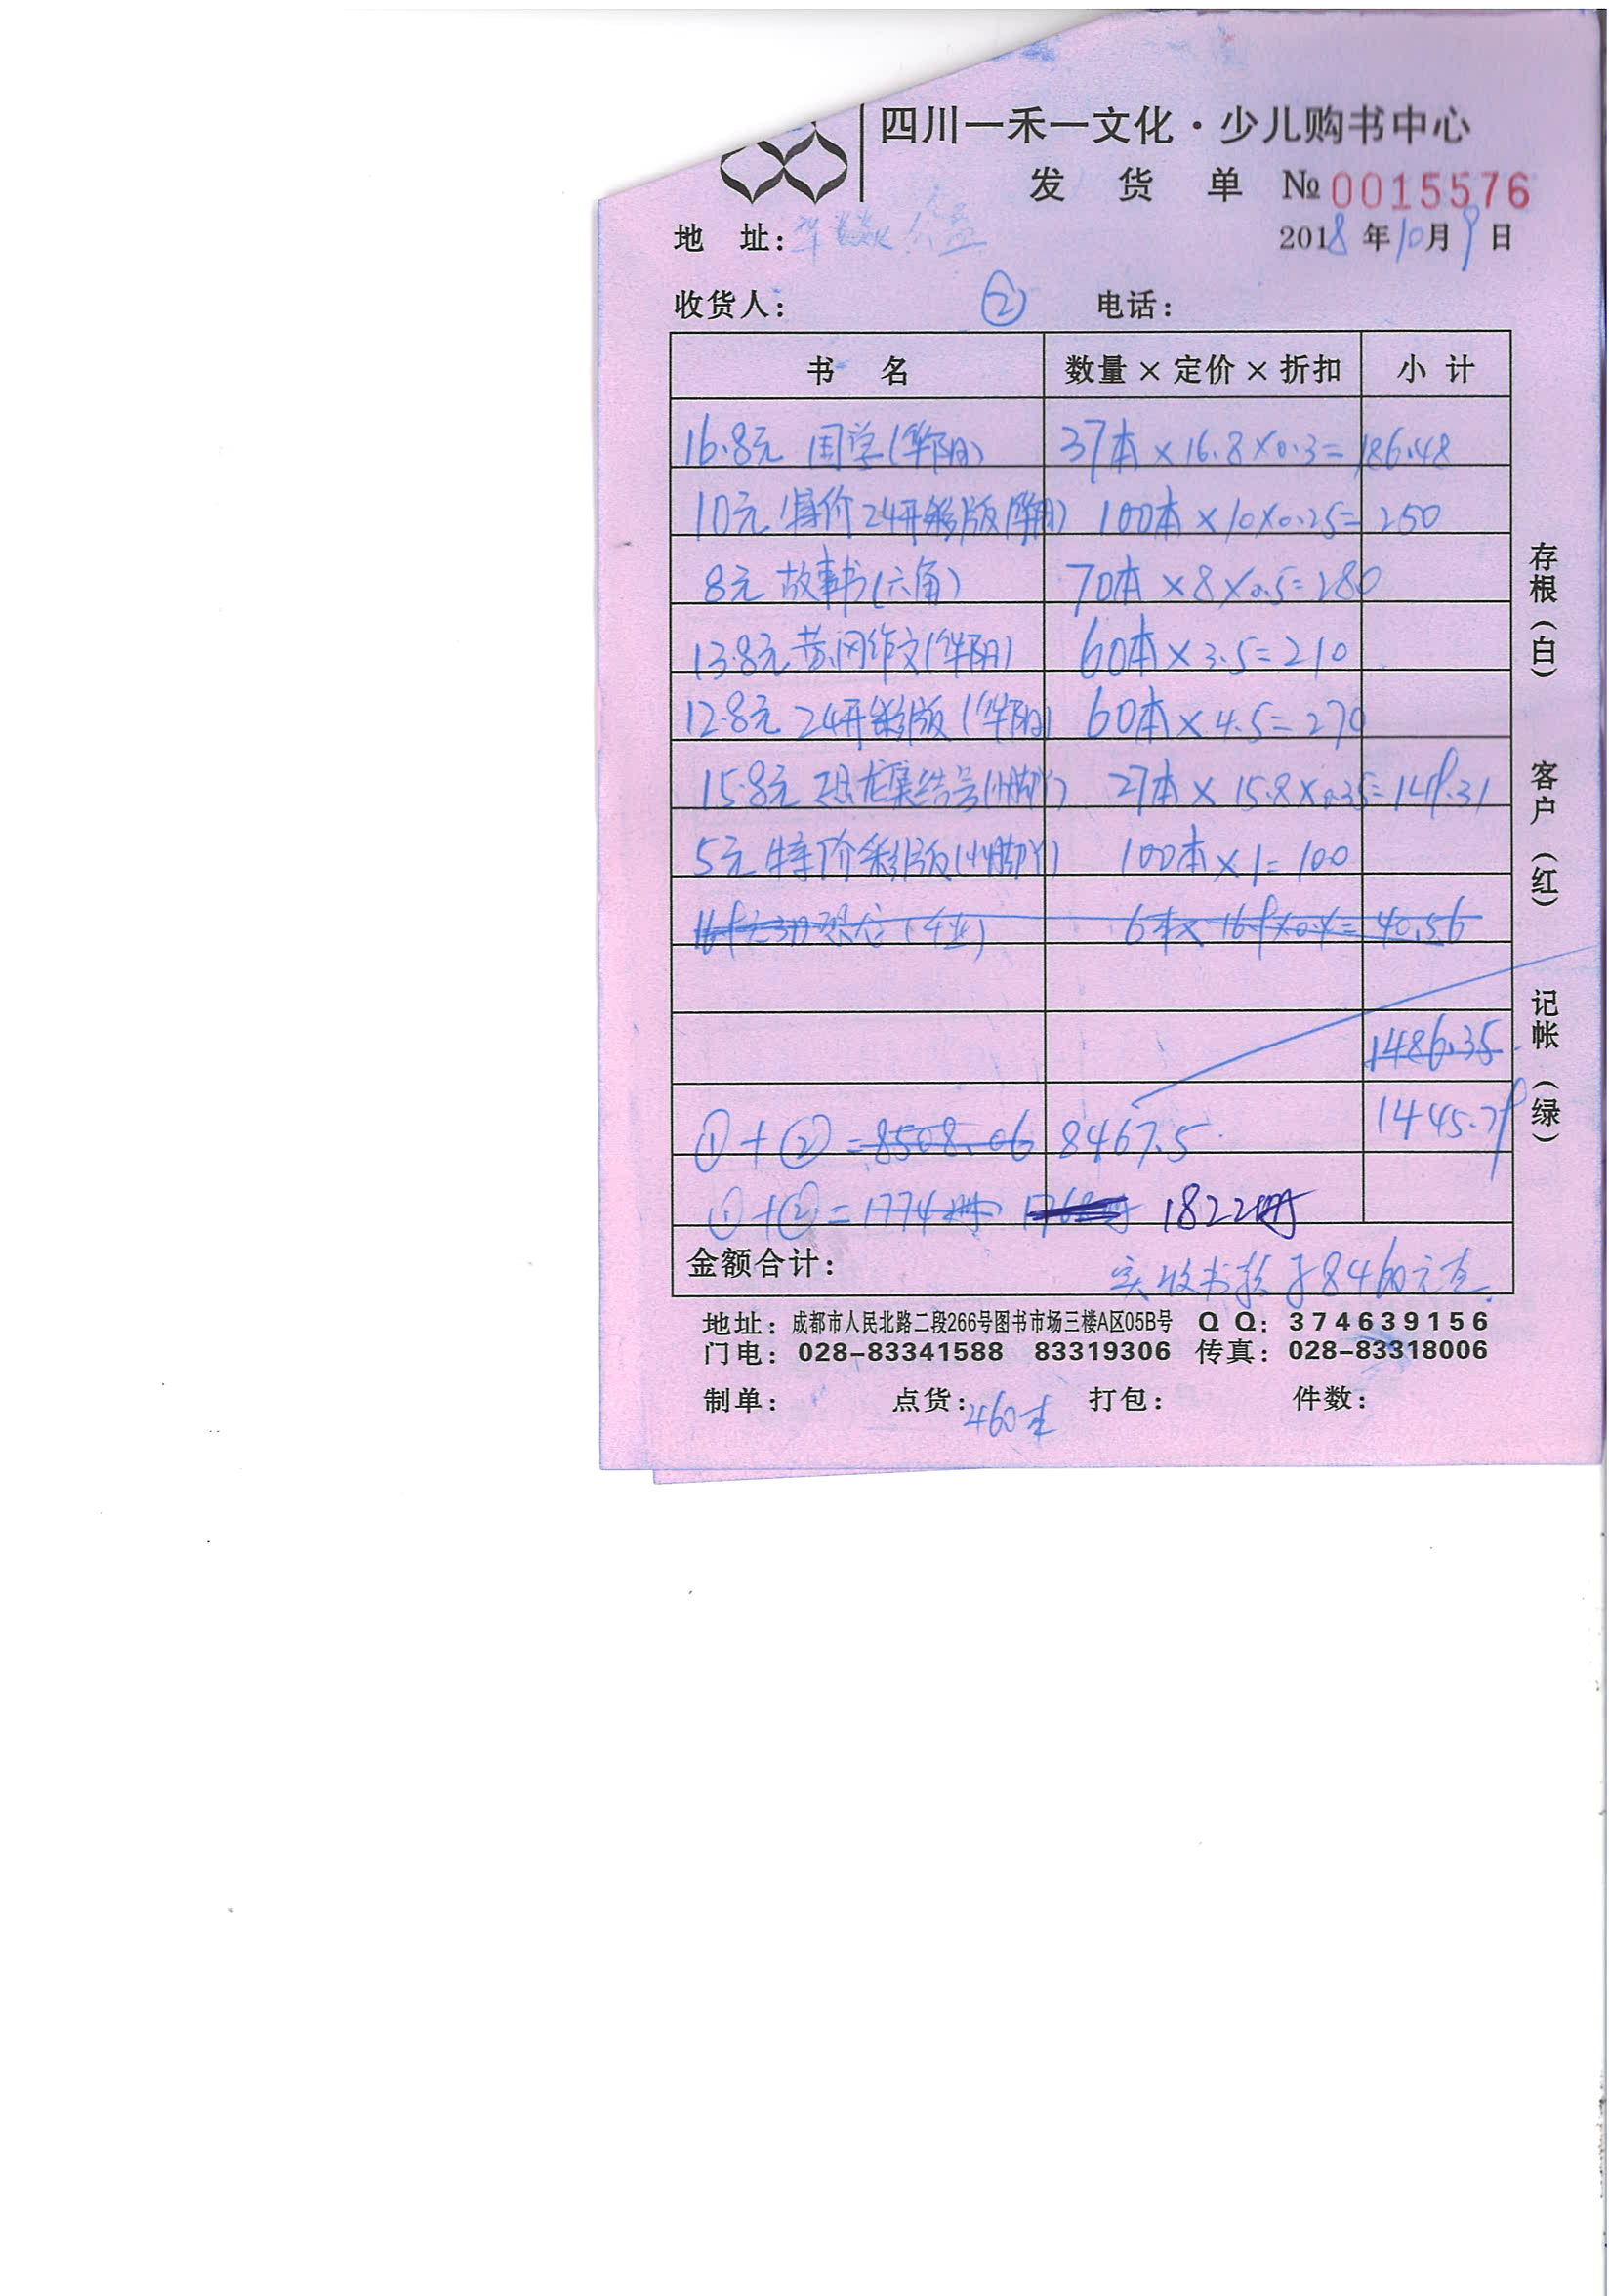 四川一禾一文化·少儿购书中心
发货单 № 0015576
地 址: 公益 2018年10月9日
收货人: ② 电话:
书 名 数量×定价×折扣 小 计
16.8元 国学(华阳) 37本×16.8×0.3=186.48
10元 特价24开彩版(华阳) 100本×10×0.25=250
8元 故事书(六角) 70本×8×0.5=280
13.8元 黄冈作文(华阳) 60本×3.5=210
12.8元 24开彩版(华阳) 60本×4.5=270
15.8元 恐龙集结号(小脚丫) 27本×15.8×0.35=149.31
5元 特价彩版(小脚丫) 100本×1=100
16.9元3D恐龙 6本×16.9×0.4=40.56
1486.35
1445.79
①+②=8508.06 8467.5
①+②=1774册 1768册 1822册
金额合计: 实收书款 8460元
地址: 成都市人民北路二段266号图书市场三楼A区05B号 QQ: 374639156
门电: 028-83341588 83319306 传真: 028-83318006
制单: 点货: 460本 打包: 件数:
存根(白) 客户(红) 记帐(绿)